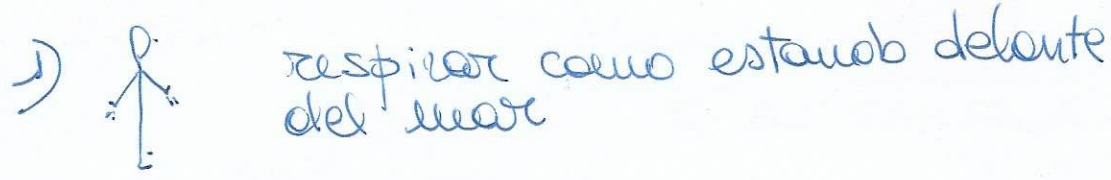 1) respirar como estando delante
del mar